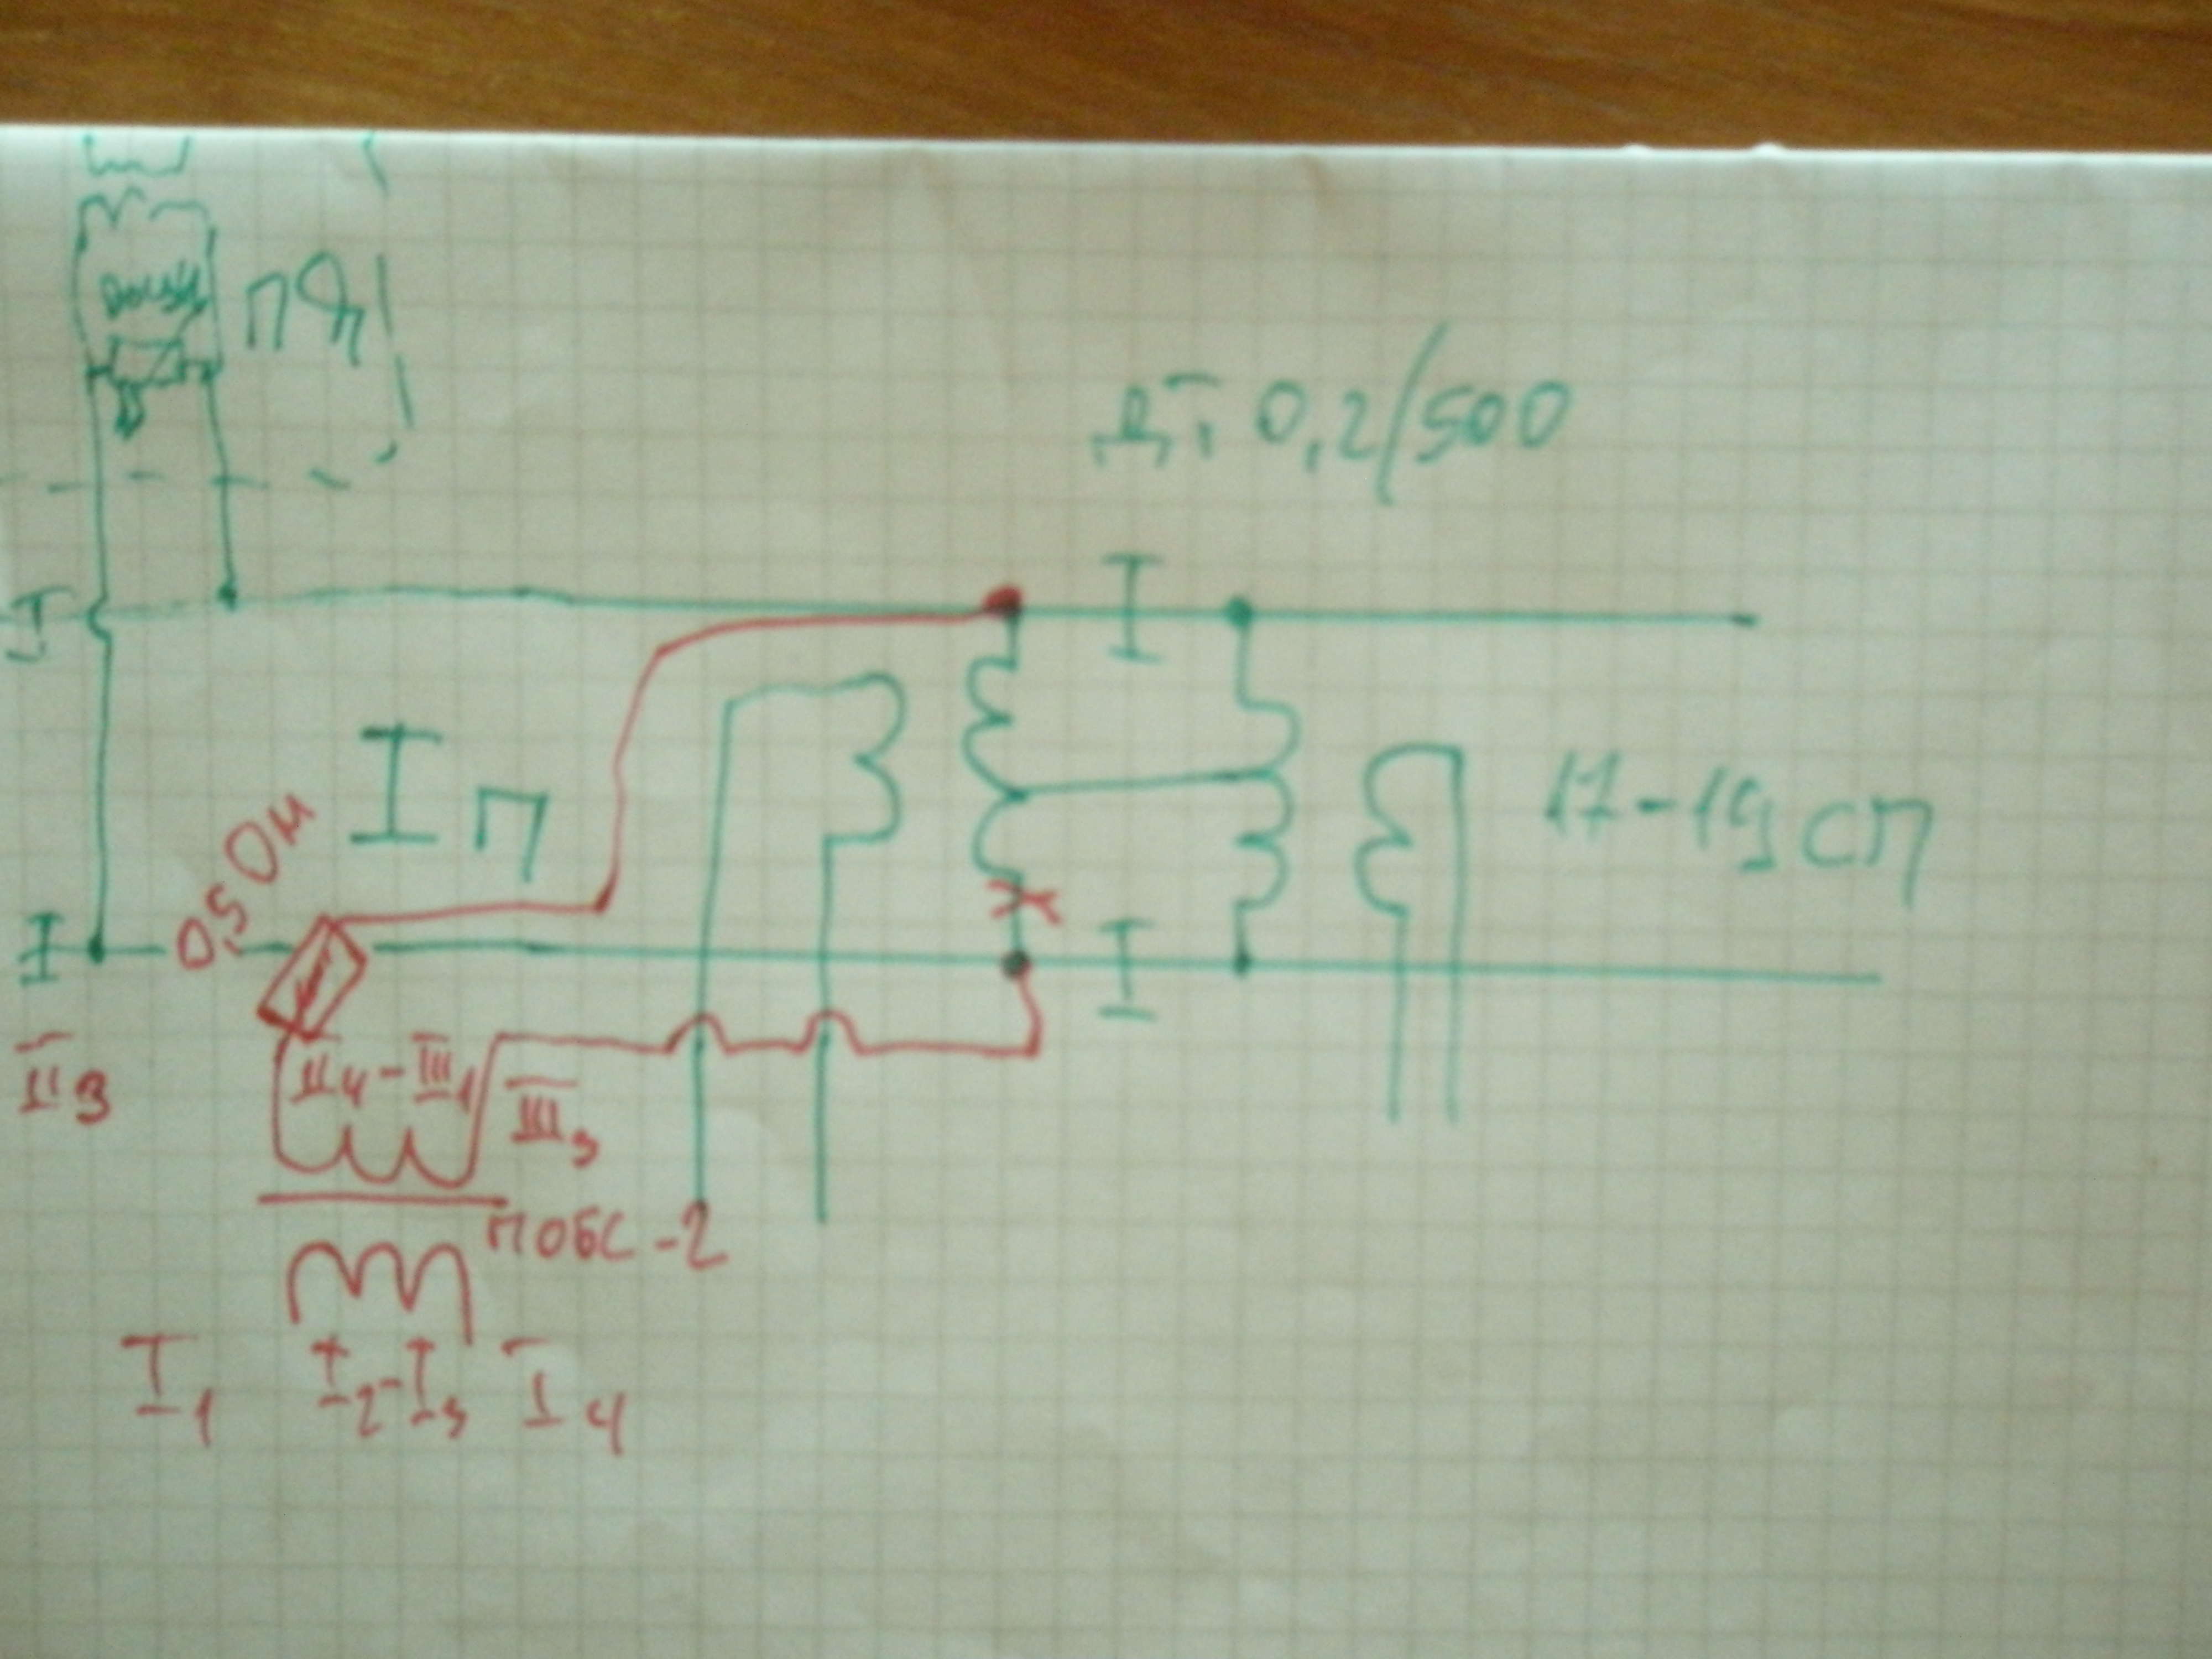 ДТ 0,2/500
I п
17-19 СП
0,5 Ом
II3
II4-III1
III3
ПОБС-2
I1
I2-I3
I4